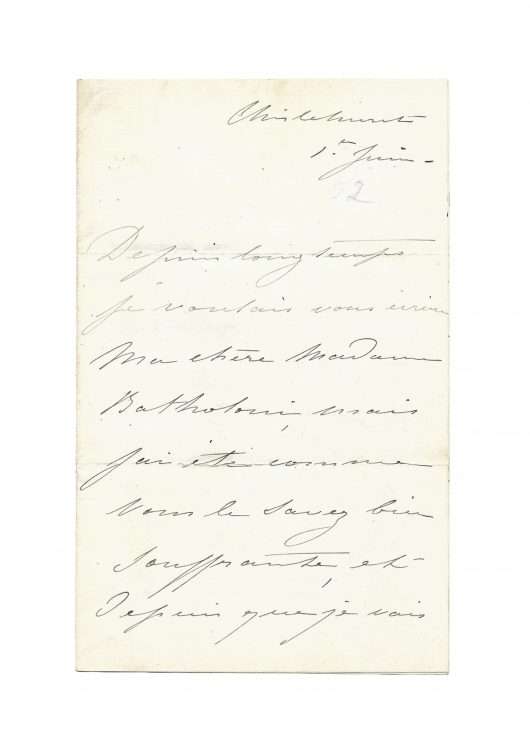 Chislehurst
1er Juin -
92
Depuis longtemps
je voulais vous écrire
Ma chère Madame
Batholoni, mais
j'ai été comme
vous le savez bien
souffrante, et
depuis que je vais